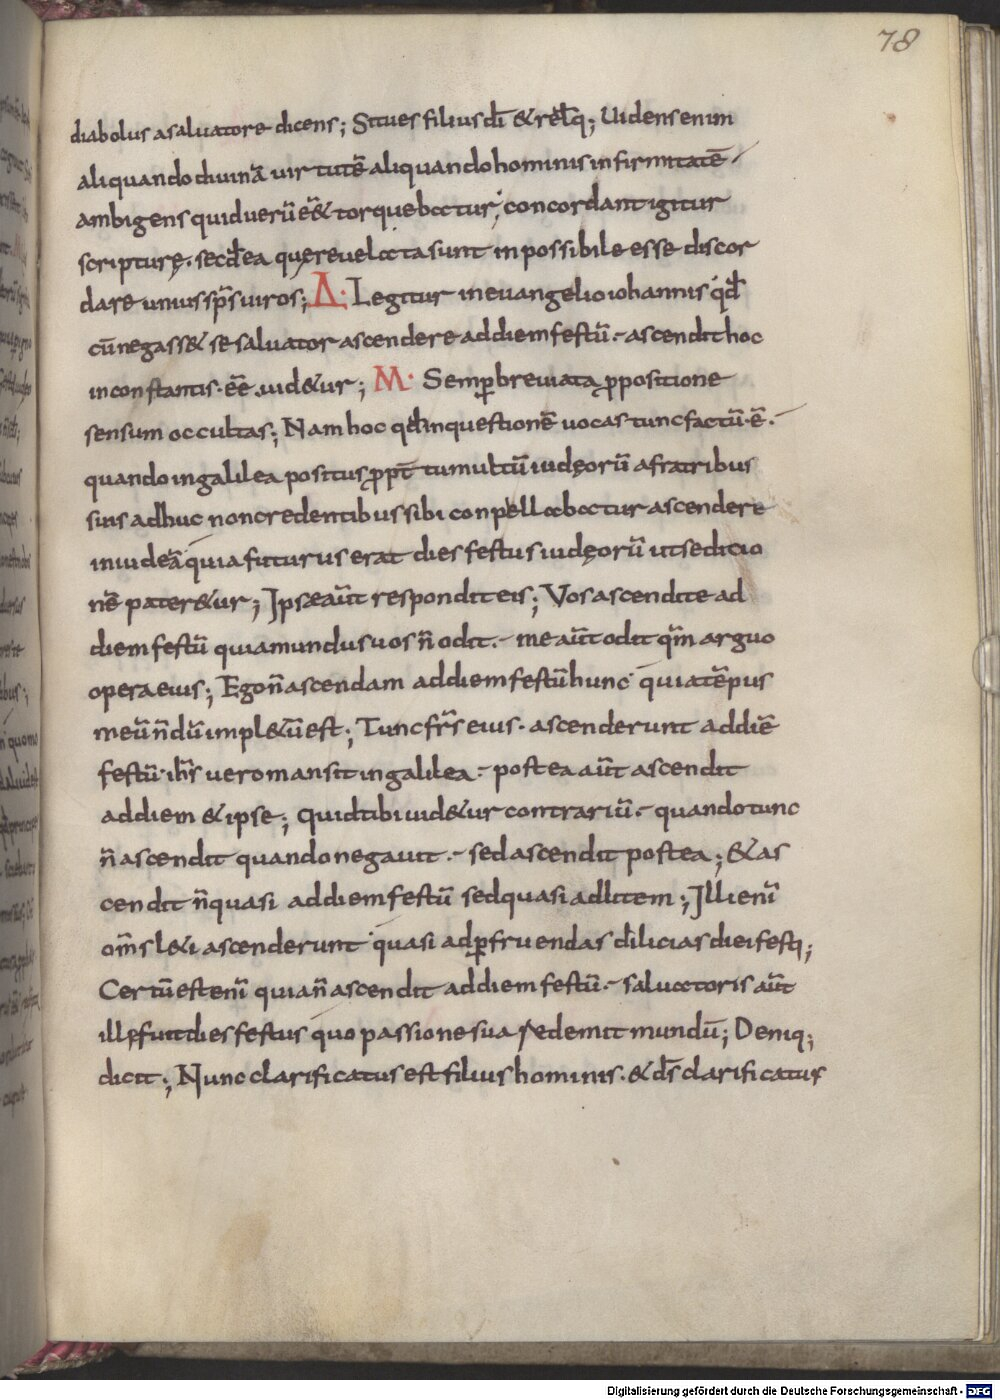 78
diabolus asaluatore dicens; Situes filius dī & relq̄; Uidens enim
aliquando diuinā uirtutē aliquando hominis infirmitatē
ambigens quid uerū eēt & torquebatur; concordant igitur
scripturę. sed ea quę reuelata sunt inpossibile esse discor
dare unius sp̄s uiros; Δ. Legitur in euangelio iohannis qđ
cū negass& se saluator ascendere ad diem festū. ascendit hoc
inconstantis. eē uid&ur; M. Semp breuiata ppositione
sensum occultas; Nam hoc qđ in questionē uocas tunc factū. ē.
quando in galilea positus ppt tumultū iudęorū a fratribus
suis adhuc non credentibus sibi conpellabatur ascendere
in iudeā quia futurus erat dies festus iudęorū ut seditio
nē pater&ur; Ipse aūt respondit eis; Vos ascendite ad
diem festū quia mundus uos n̄ odit. me aūt odit qm̄ arguo
opera eius; Ego n̄ ascendam ad diem festū hunc quia tēpus
meū n̄dū impl&ū est; Tunc frs̄ eius. ascenderunt ad diē
festū. ih̄s uero mansit in galilea. postea aūt ascendit
ad diem & ipse; quid tibi uid&ur contrariū. quando tunc
n̄ ascendit quando negauit. sed ascendit postea; & as
cendit n̄ quasi ad diem festū sed quasi ad litem; Illi enī
om̄s l&i ascenderunt quasi ad pfruendas dilicias diei festi;
Certū est enī quia n̄ ascendit ad diem festū. saluatoris aūt
ille fuit dies festus quo passione sua redemit mundū; Deniq;
dicit; Nunc clarificatus est filius hominis. & ds̄ clarificatur
Digitalisierung gefördert durch die Deutsche Forschungsgemeinschaft - DFG